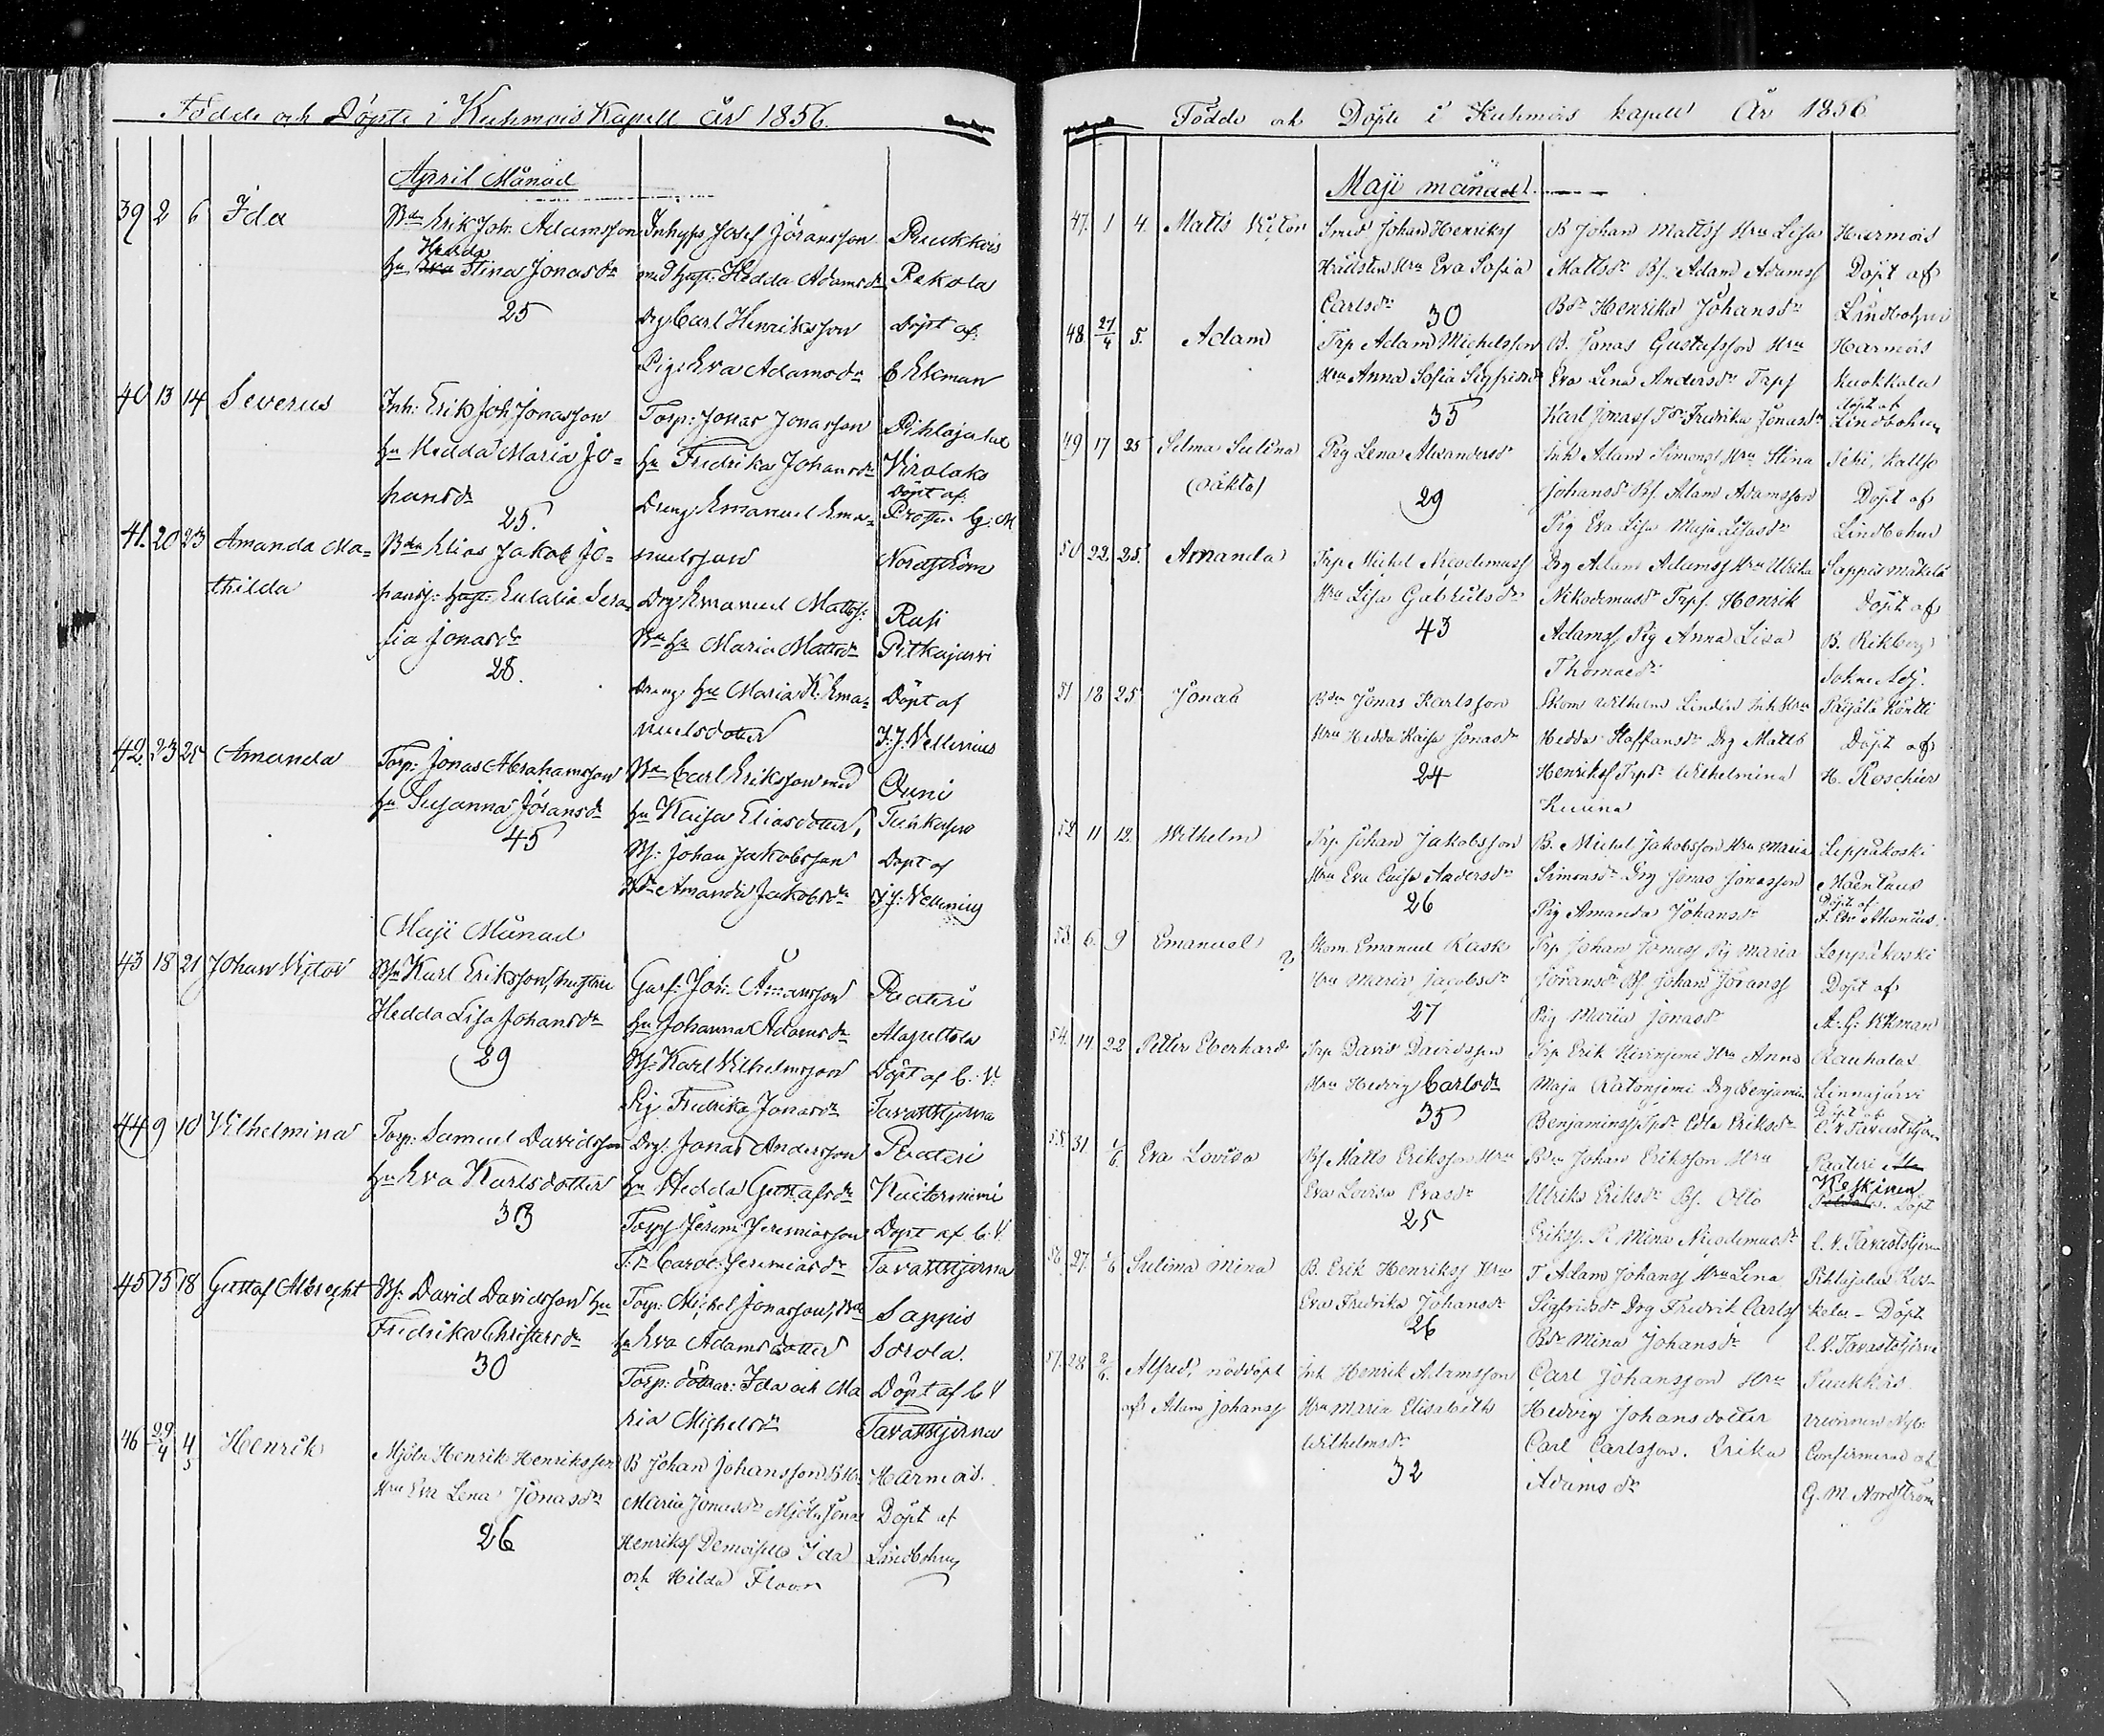 Födde och Döpte i Kuhmois Kapell år 1856.
April Månad
39 2 6 Ida
Erik Joh. Adamsson
Hedda
hu Eva Stina Jonasdr
25
Inhyss Josef Jöransson
med hust: Hedda Adamsdr
Drg Carl Henriksson
Pig: Eva Adamsdr
Puukkois
Rakola
Döpt af
C Ekman
40 13 14 Severus
Inh: Erik Joh Jonasson
hu Hedda Maria Jo=
hansdr
25.
Torp: Jonas Jonasson
hu Fredrika Johansdr
Dreng Emanuel Ema=
nuelsson
Pihlajalax
Virolaks
Döpt af
G: M
Nordström
41. 20 23 Amanda Ma=
thilda
Elias Jakob Jo=
hanss: hust: Eulalia Sera
fia Jonasdr
28.
Drg Emanuel Matts:
hu Maria Mattsdr
Dreng hu Maria K. Ema=
nuelsdotter
Rasi
Pitkajärvi
Döpt af
J: J: Vellenius
42 23 25 Amanda
Torp: Jonas Abrahamsson
hu Susanna Jöransdr
45
Carl Eriksson med
hu Kaisa Eliasdotter,
Bs: Johan Jakobsson
Bdr Amanda Jakobsdr
Ouni
Döpt af
J J: Vellenius
Maji Månad
43 18 21 Johan Victor
Karl Eriksson, hustru
Hedda Lisa Johansdr
29
Joh:
hu Johanna Adamsdr
Bs: Karl Vilhelmsson
Pig Fredrika Jonasdr
Puateri
Alapettola
Döpt af C. V.
Tavaststjerna
44 9 10 Vilhelmina
Torp: Samuel Davidsson
hu Eva Karlsdotter
33
Drg: Jonas Andersson
hu Hedda Gustafsdr
Torps Jerem: Jeremiasson
T: dr Carol: Jeremiasdr
Puateri
Kuitorniemi
Döpt af C. V.
Tavaststjerna
45 15 18 Gustaf Albrecht
Bs: David Davidsson hu
Fredrika Christersdr
30
Torp: Michel Jonasson,
hu Eva Adamsdotter
Torp: döttrar: Ida och Ma
ria Michelsdr
Sappis
Sorola.
Döpt af C V
Tavaststjerna
46 29/4 4/5 Henrik
Mjöln Henrik Henriksson
Hru Eva Lena Jonasdr
26
B Johan Johansson
Maria Jonasdr Mjöln Jonas
Henrikss Demoiselle Ida
och Hilda Floor
Harmois.
Döpt af
Lindbohm
Födde och Döpte i Kuhmois kapell År 1856
Maji månad.
47. 1 4. Matts Victor
Smed Johan Henrikss
Hällsten Hru Eva Sofia
Carlsdr
30
B Johan Mattss Hru Lisa
Mattsdr Bs. Adam Adamss
Bdr Henrika Johansdr
Harmois
Döpt af
Lindbohm
48. 27/4 5. Adam
Trp Adam Michelsson
Hru Anna Sofia Sigfridsdr
35
B. Jonas Gustafsson Hru
Eva Lena Andersdr Trps
Karl Jonass Tdr Fredrika Jonasdr
Harmois
Kuokkala
döpt af
Lindbohm
49 17 25 Selma Sulina
(oäkta)
Pig Lena Alexandersdr
29
Inh Adam Simonss Hru Stina
Johansdr Bs. Adam Adamsson
Pig Eva Lisa Maja Lisasdr
Döpt af
Lindbohm
50 22. 25. Amanda
Trp Michel Nicodemuss
Hru Lisa Gabrielsdr
43
Drg Adam Adamss Hru Ulrika
Nikodemusdr Trps. Henrik
Adamss Pig Anna Lisa
Thomasdr
Sappis Mäkelä
Döpt af
B. Rikberg
Sokne Adj.
51 18 25 Jonas
Bdn Jonas Karlsson
Hru Hedda Kaisa Jonasdr
24
Skom Wilhelm Lindin Inh Hru
Hedda Staffansdr Drg Matts
Henrikss Trpdr Wilhelmina
Kuuna
Döpt af
H. Roschier
52 11 12. Wilhelm
Trp Johan Jakobsson
Hru Eva Caisa Andersdr
26
B. Michel Jakobsson Hru Maria
Simonsdr Drg Jonas Jonasson
Pig Amanda Johansdr
Leppäkoski
Mäenlaus
Döpt af
53. 6. 9 Emanuel
Skom. Emanuel Kask
Hru Maria Jacobsdr
27
Trp Johan Jonass Pig Maria
Jöransdr Bs Johan Jöranss
Pig Maria Jonasdr
Leppäkoski
Döpt af
A. G. Ekman
54. 14 22 Petter Eberhard
Trp David Davidsson
Hru Hedvig Carlsdr
35
Trp Erik Kivinjemi Hru Anna
Maja Ratonjemi Drg Benjamin
Benjaminss Tpdr Edla Eriksdr
Rauhalax
Linnajärvi
Döpt af
C. V Tavaststjerna
55. 31. 1/6. Eva Lovisa
Bs Matts Eriksson Hru
Eva Lovisa Evasdr
25
Bdn Johan Eriksson Hru
Ulrika Eriksdr Bs. Otto
Erikss. P. Mina Nicodemusdr
Puateri
Keskinen
Döpt
C. V. Tavaststjerna
56. 27. 1/6 Sulima Mina
B. Erik Henrikss Hru
Eva Fredrika Johansdr
26
T Adam Johanss Hru Lena
Sigfridsdr Drg Fredrik Carlss
Bdr Mina Johansdr
Pihlajalax Kos=
kela - Döpt
C. V. Tavaststjerna
57. 28 2/6. Alfred, nöddöpt
af Adam Johanss
Inh Henrik Adamsson
Hru Maria Elisabeth
Wilhelmsdr
32
Carl Johansson Hru
Hedvig Johansdotter
Carl Carlsson. Erika
Adamsdr
Puukkois
Confirmerad af
G. M. Nordström